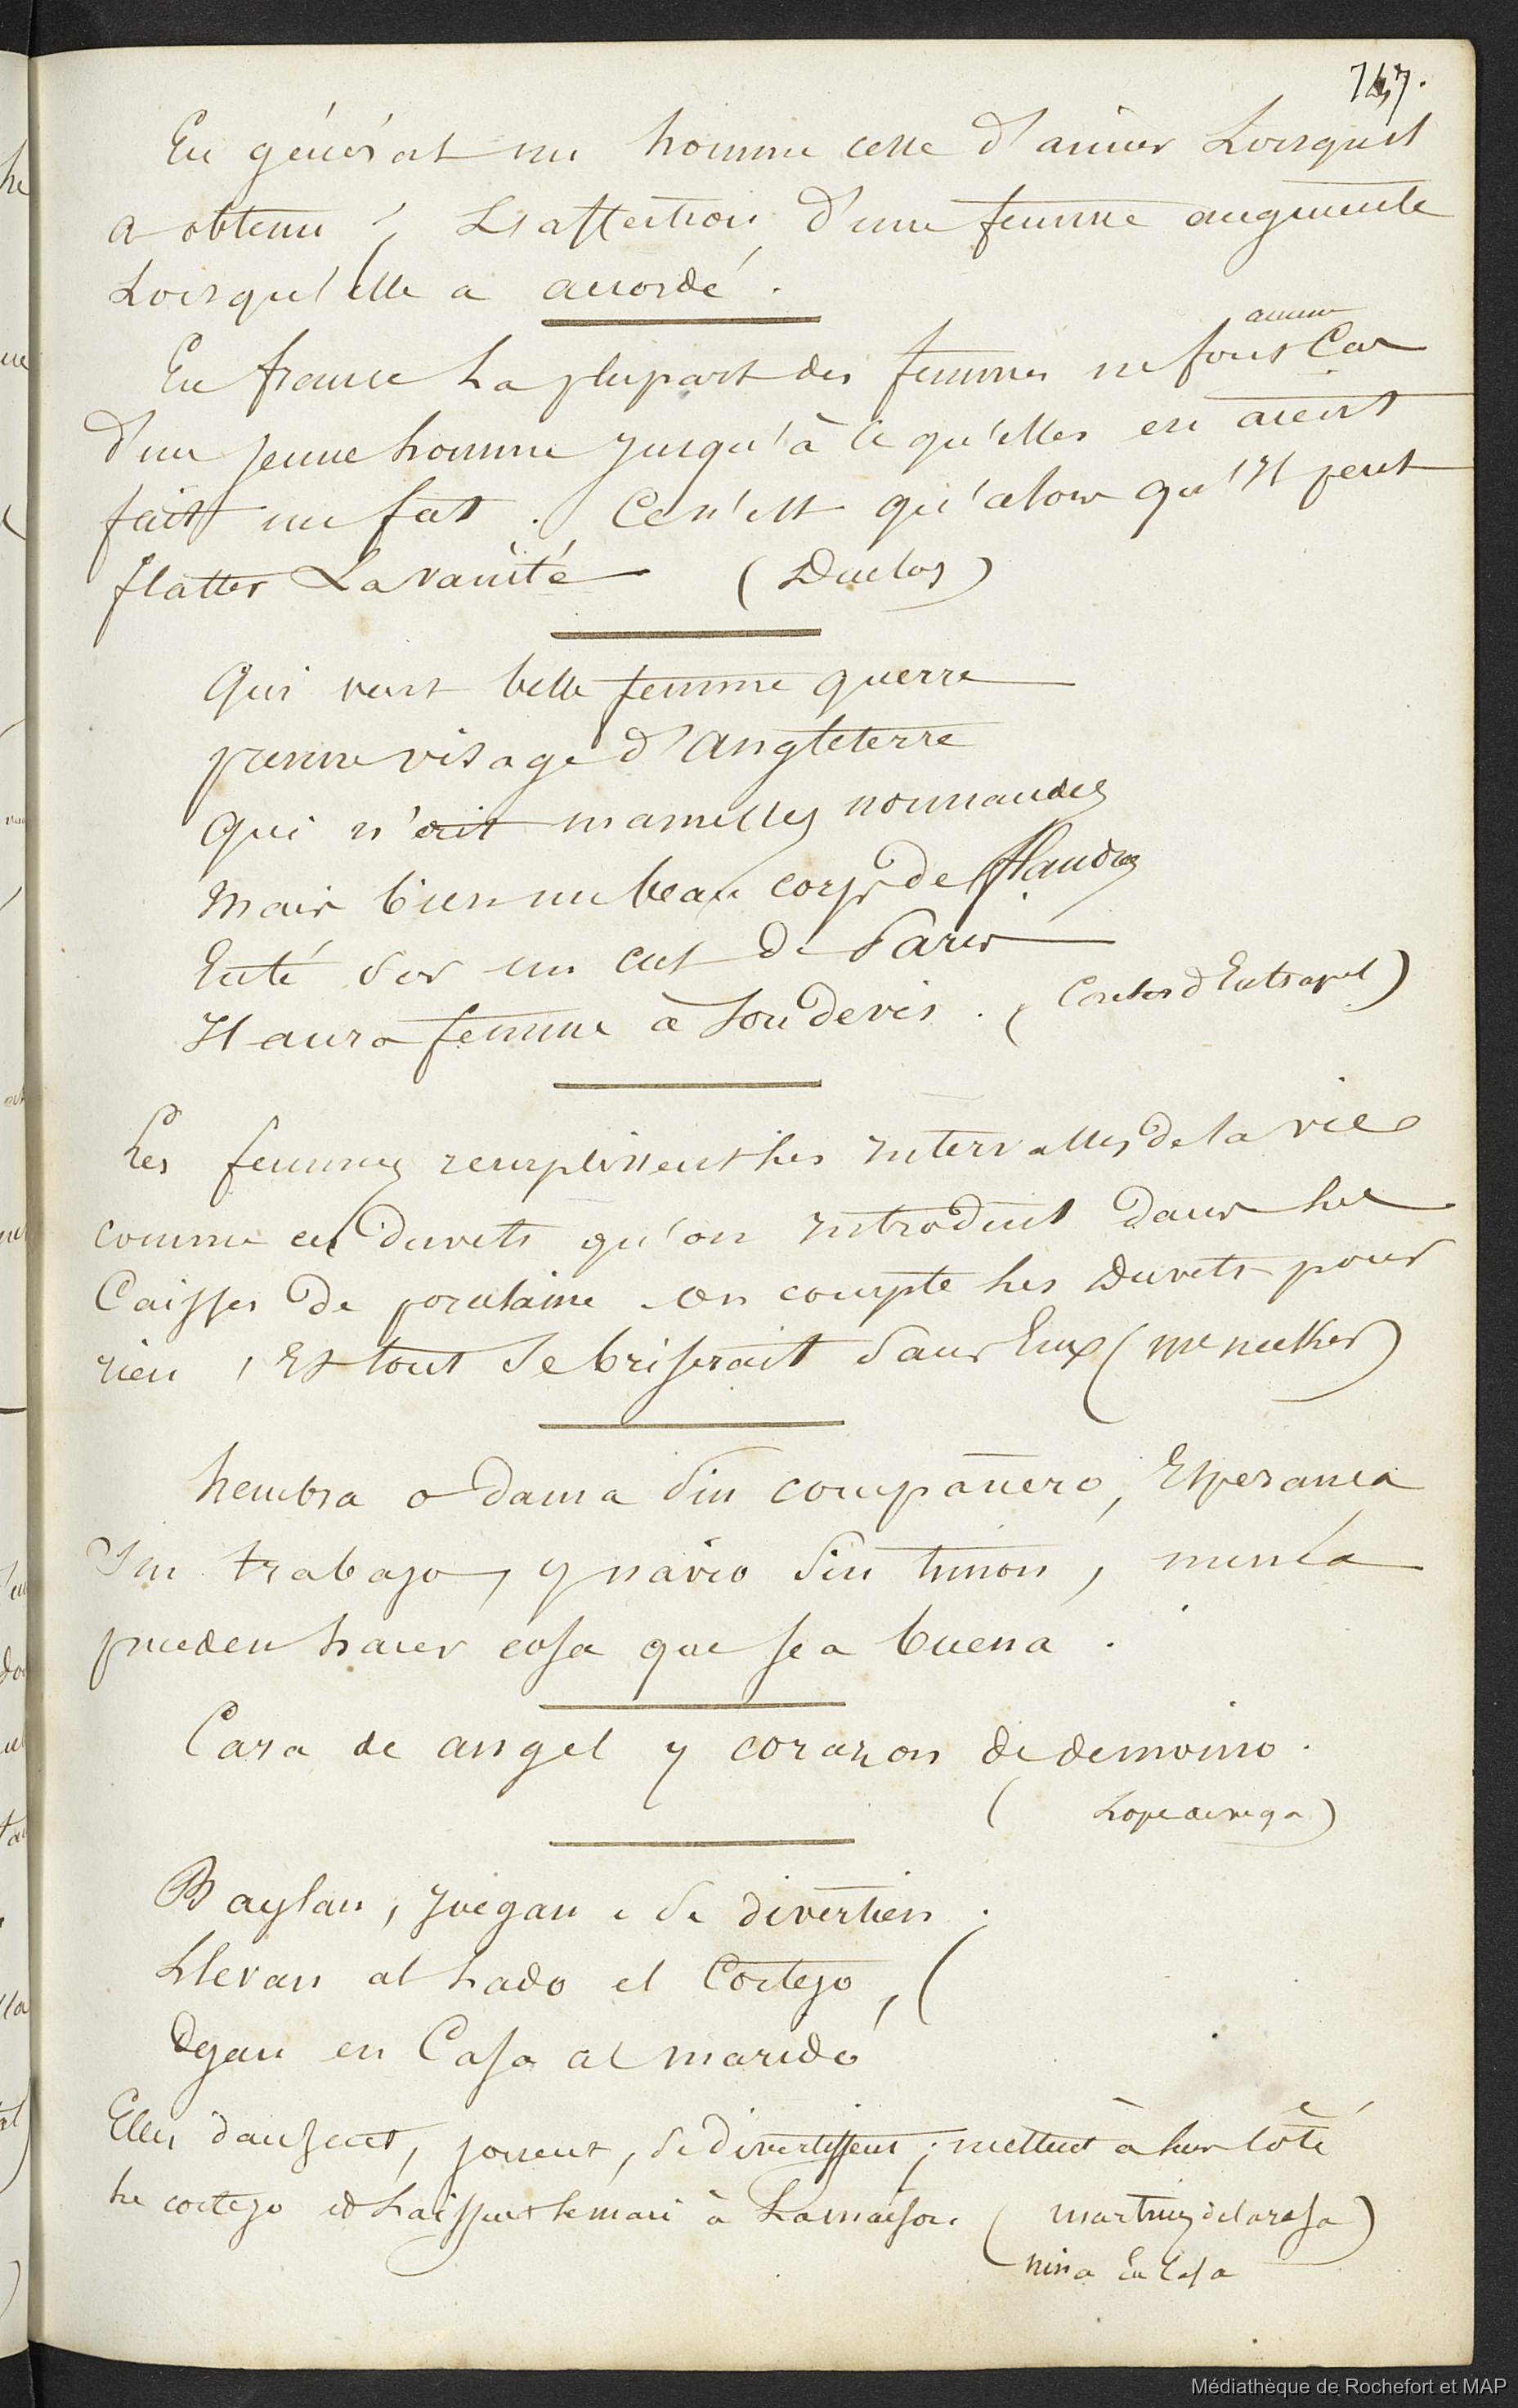 747.
En général un homme cesse d'aimer Lorsquil
a obtenu ; L'affection d'une femme augmente
Lorsqu'elle a accordé.
aucun
En france La plupart des femmes ne font Cas
d'un jeune homme jusqu'à ce qu'elles en aient
fait un fat. Ce n'est qu'alors qu'Il peut
flatter La vanité (Duclos)
Qui veut belle femme querre
prenne visage d'angleterre
Qui n'ait mamelles normandes
Mais bien un beau corps de flandres
Enté sur un cul de Paris
Il aura femme à son devis. (Contes d'Eutrapel)
Les femmes remplissent Les Intervalles de la vie
comme ces duvets qu'on Introduit dans Les
Caisses de porcelaine. on compte Les Duvets pour
rien, Et tout Se briserait Sans Eux (Me necker)
hembra o dama Sin compañero, Esperança
Sin trabajo, y navio Sin timon, nunca
pueden hacer cosa que sea buena.
Cara de angel y corazon de demonio.
(Lope de vega)
Baylan, Juegan e Se divertien.
Llevan al Lado el Cortejo,
Dejan en Casa al marido
Elles dansent, jouent, Se divertissent ; mettent à leur côté
Le cortejo et Laissent Le mari à La maison (martinez de la rosa)
nina En Casa
Médiathèque de Rochefort et MAP